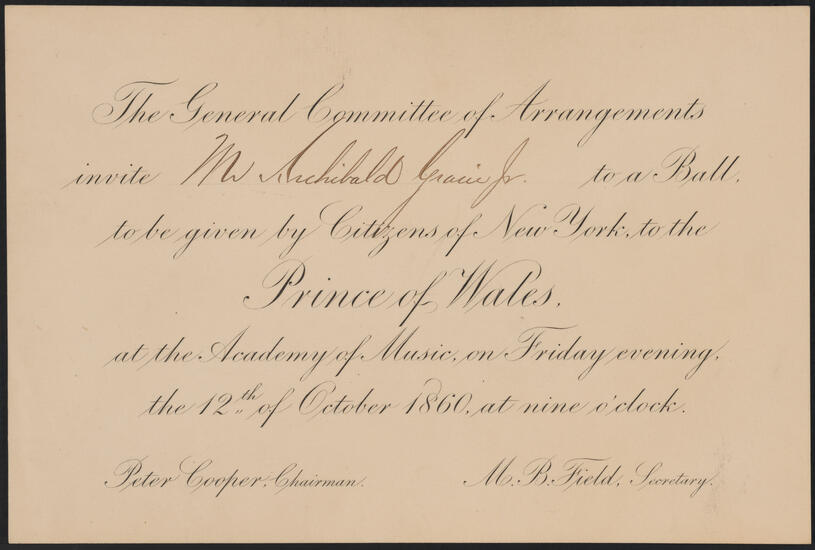 The General Committee of Arrangements
invite Mr Archibald Gracie Jr. to a Ball,
to be given by Citizens of New York, to the
Prince of Wales,
at the Academy of Music, on Friday evening,
the 12th of October 1860, at nine o'clock.
Peter Cooper, Chairman. M. B. Field, Secretary.